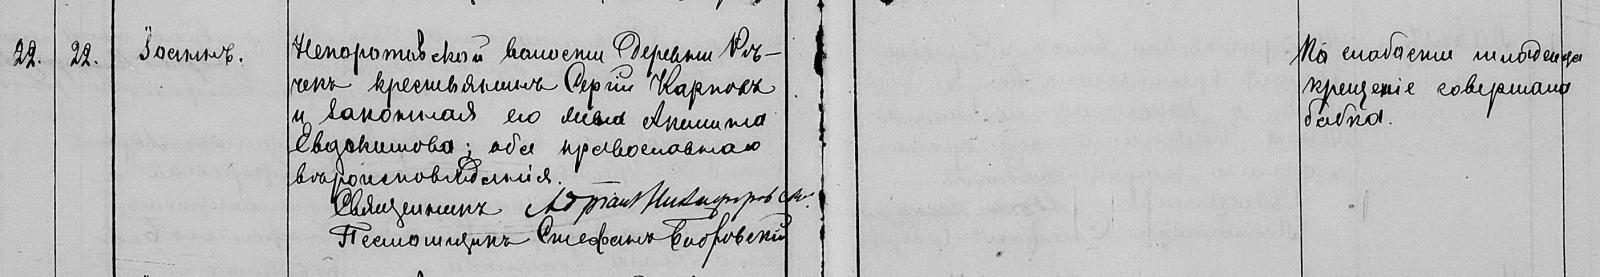 22. 22. Іоаннъ.
Непоротовской волости Деревни Ру-
чекъ крестьянинъ Сергій Карповъ
и законная его жена Акилина
Евдокимова; оба православнаго
вѣроисповѣданія.
Священникъ Адріанъ Никифоровскій.
Псаломщикъ Стефанъ Бобровскій
По слабости младенца
крещеніе совершала
бабка.